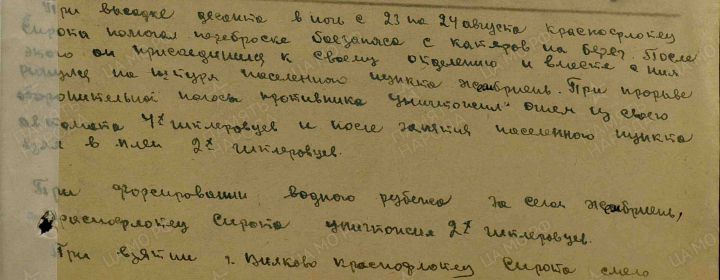 При высадке десанта в ночь с 23 на 24 августа краснофлотец
Сирота помогал переброске боезапаса с катеров на берег. После
этого он присоединился к своему отделению и вместе с ним
ринулся на штурм населенного пункта Жебриень. При прорыве
оборонительной полосы противника уничтожил огнем из своего
автомата 4х гитлеровцев и после занятия населенного пункта
взял в плен 2х гитлеровцев.
При форсировании водного рубежа за селом Жебриень,
краснофлотец Сирота уничтожил 2х гитлеровцев.
При взятии г. Вилково краснофлотец Сирота смело